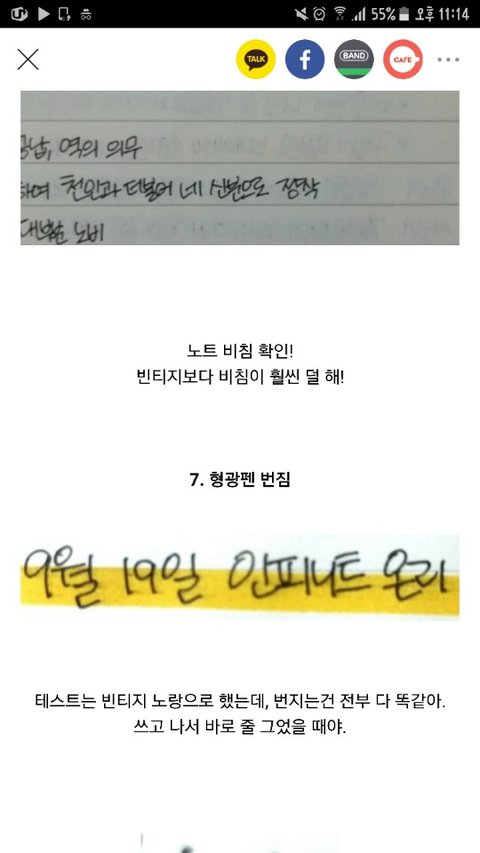 55% 오후 11:14
TALK
BAND
CAFE
공납, 역의 의무
하여 천인과 더불어 네 신분으로 정착
대부분 노비
노트 비침 확인!
빈티지보다 비침이 훨씬 덜 해!
7. 형광펜 번짐
9월 19일 인피니트 온리
테스트는 빈티지 노랑으로 했는데, 번지는건 전부 다 똑같아.
쓰고 나서 바로 줄 그었을 때야.